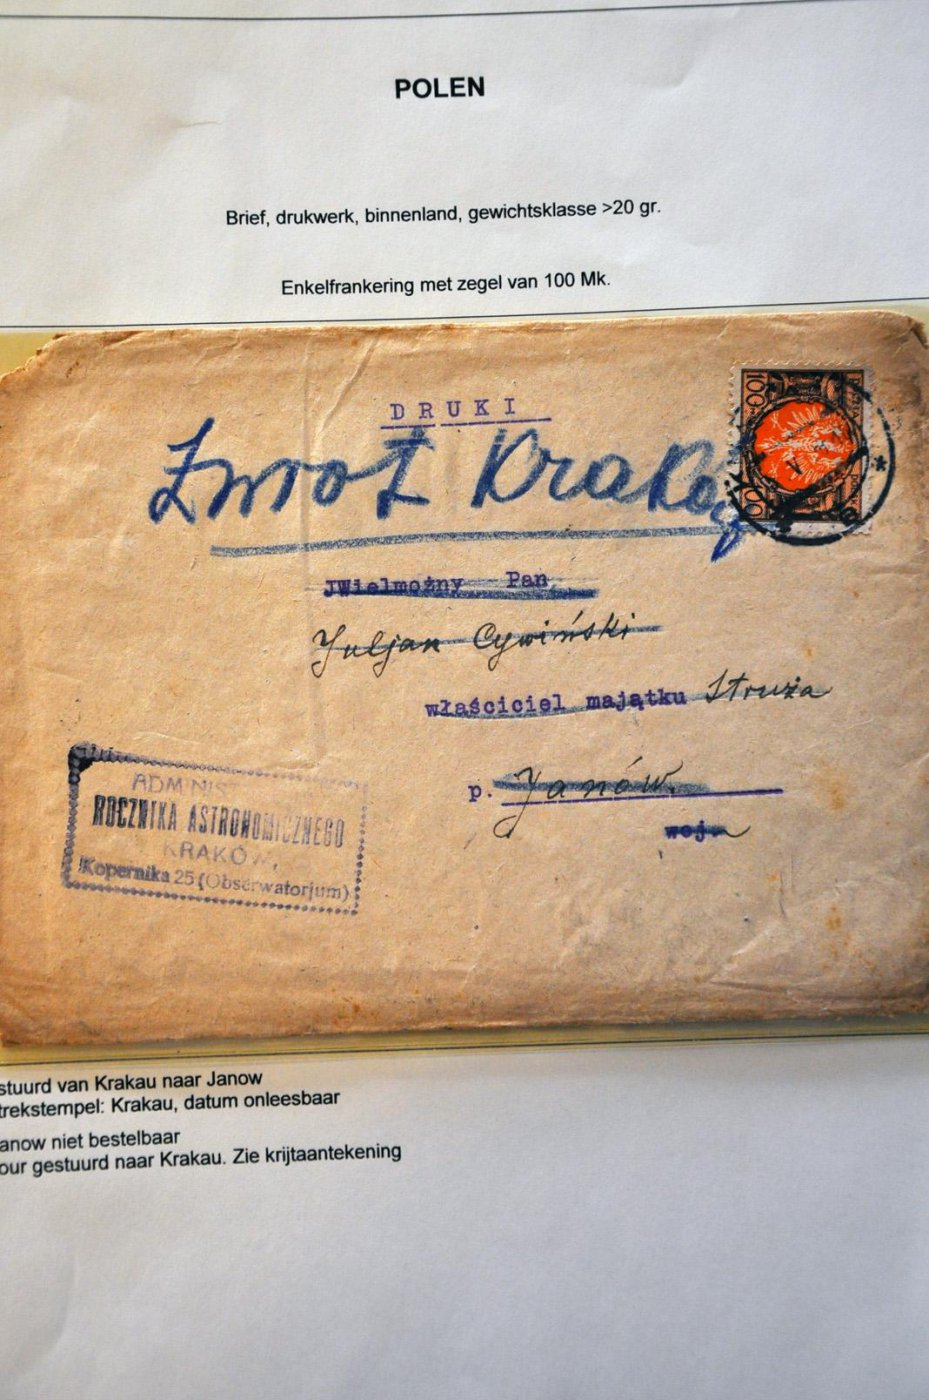 POLEN
Brief, drukwerk, binnenland, gewichtsklasse >20 gr.
Enkelfrankering met zegel van 100 Mk.
DRUKI
Zwrot Kraków
JWielmożny Pan
Juljan Cywiński
właściciel majątku Struża
p. Janów.
woj.
ADMINIST
ROCZNIKA ASTRONOMICZNEGO
KRAKÓW,
Kopernika 25 (Obserwatorjum)
100
stuurd van Krakau naar Janow
trekstempel: Krakau, datum onleesbaar
anow niet bestelbaar
our gestuurd naar Krakau. Zie krijtaantekening